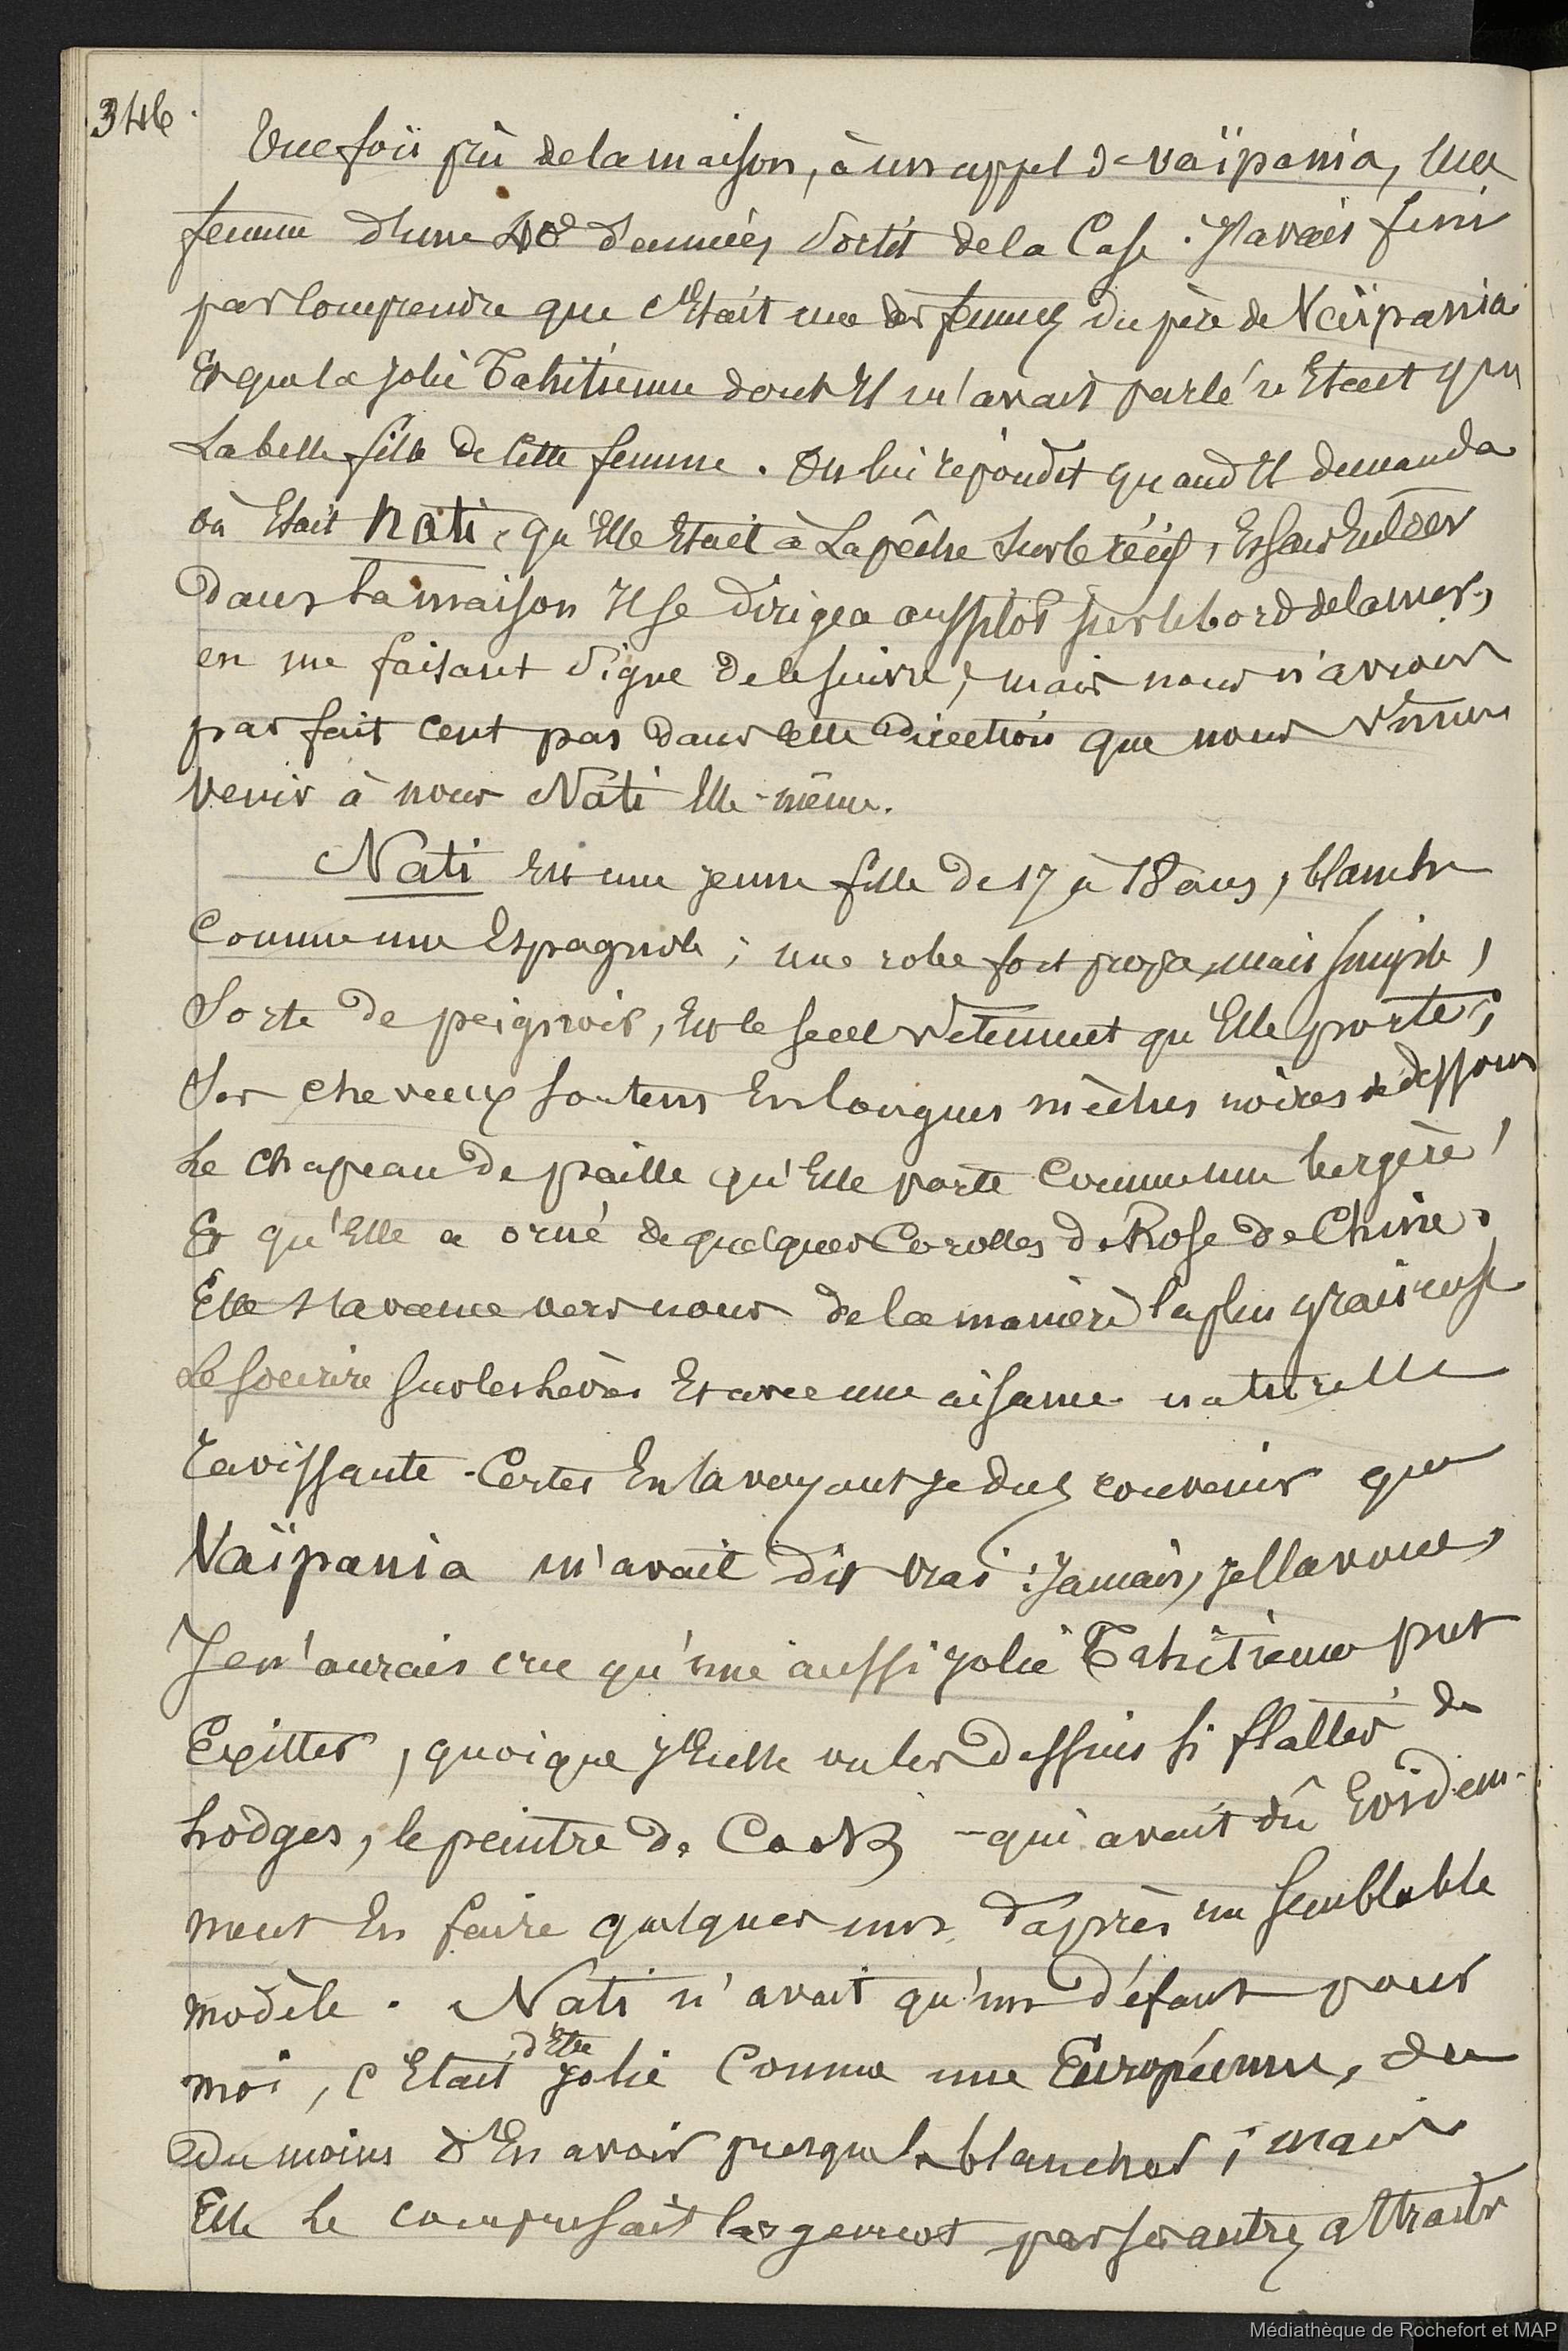 346.
Une fois près de la maison, à un appel de Vaïpania, une
femme d'une 40e d'années sortit de la Case. J'avais fini
par comprendre que c'Etait une des femmes du père de Vaïpania
Et que la jolie Tahitienne dont Il m'avait parlé n'Etait que
La belle fille de Cette femme. On lui répondit quand Il demanda
où Etait Nati, qu'Elle Etait à La pêche sur le récif, Et sans Entrer
Dans la maison Il se dirigea aussitôt sur le bord de la mer,
en me faisant signe de le suivre, mais nous n'avions
pas fait cent pas dans cette direction que nous vîmes
venir à nous Nati Elle-même.
Nati Est une jeune fille de 17 à 18 ans, blanche
Comme une Espagnole; une robe fort propre, mais simple,
Sorte de peignoir, Est le seul vêtement qu'Elle porte;
Ses cheveux sortent En longues mèches noires de dessous
Le Chapeau de paille qu'Elle porte Comme une bergère,
Et qu'Elle a orné de quelques Corolles de Rose de Chine.
Elle s'avance vers nous de la manière la plus gracieuse
Le sourire sur les lèvres Et avec une aisance naturelle
ravissante. Certes En la voyant je dus convenir que
Vaïpania m'avait dit vrai: Jamais, je l'avoue,
Je n'aurais cru qu'une aussi jolie Tahitienne put
Exister, quoique j'Eusse vu les dessins si flattés de
hodges, le peintre de Cook, - qui avait dû Evidem-
ment En faire quelques uns d'après un semblable
modèle. Nati n'avait qu'un défaut pour
moi, c'Etait d'Etre jolie Comme une Européenne, ou
Du moins d'En avoir presque la blancheur; mais
Elle le compensait largement par ses autres attraits
Médiathèque de Rochefort et MAP